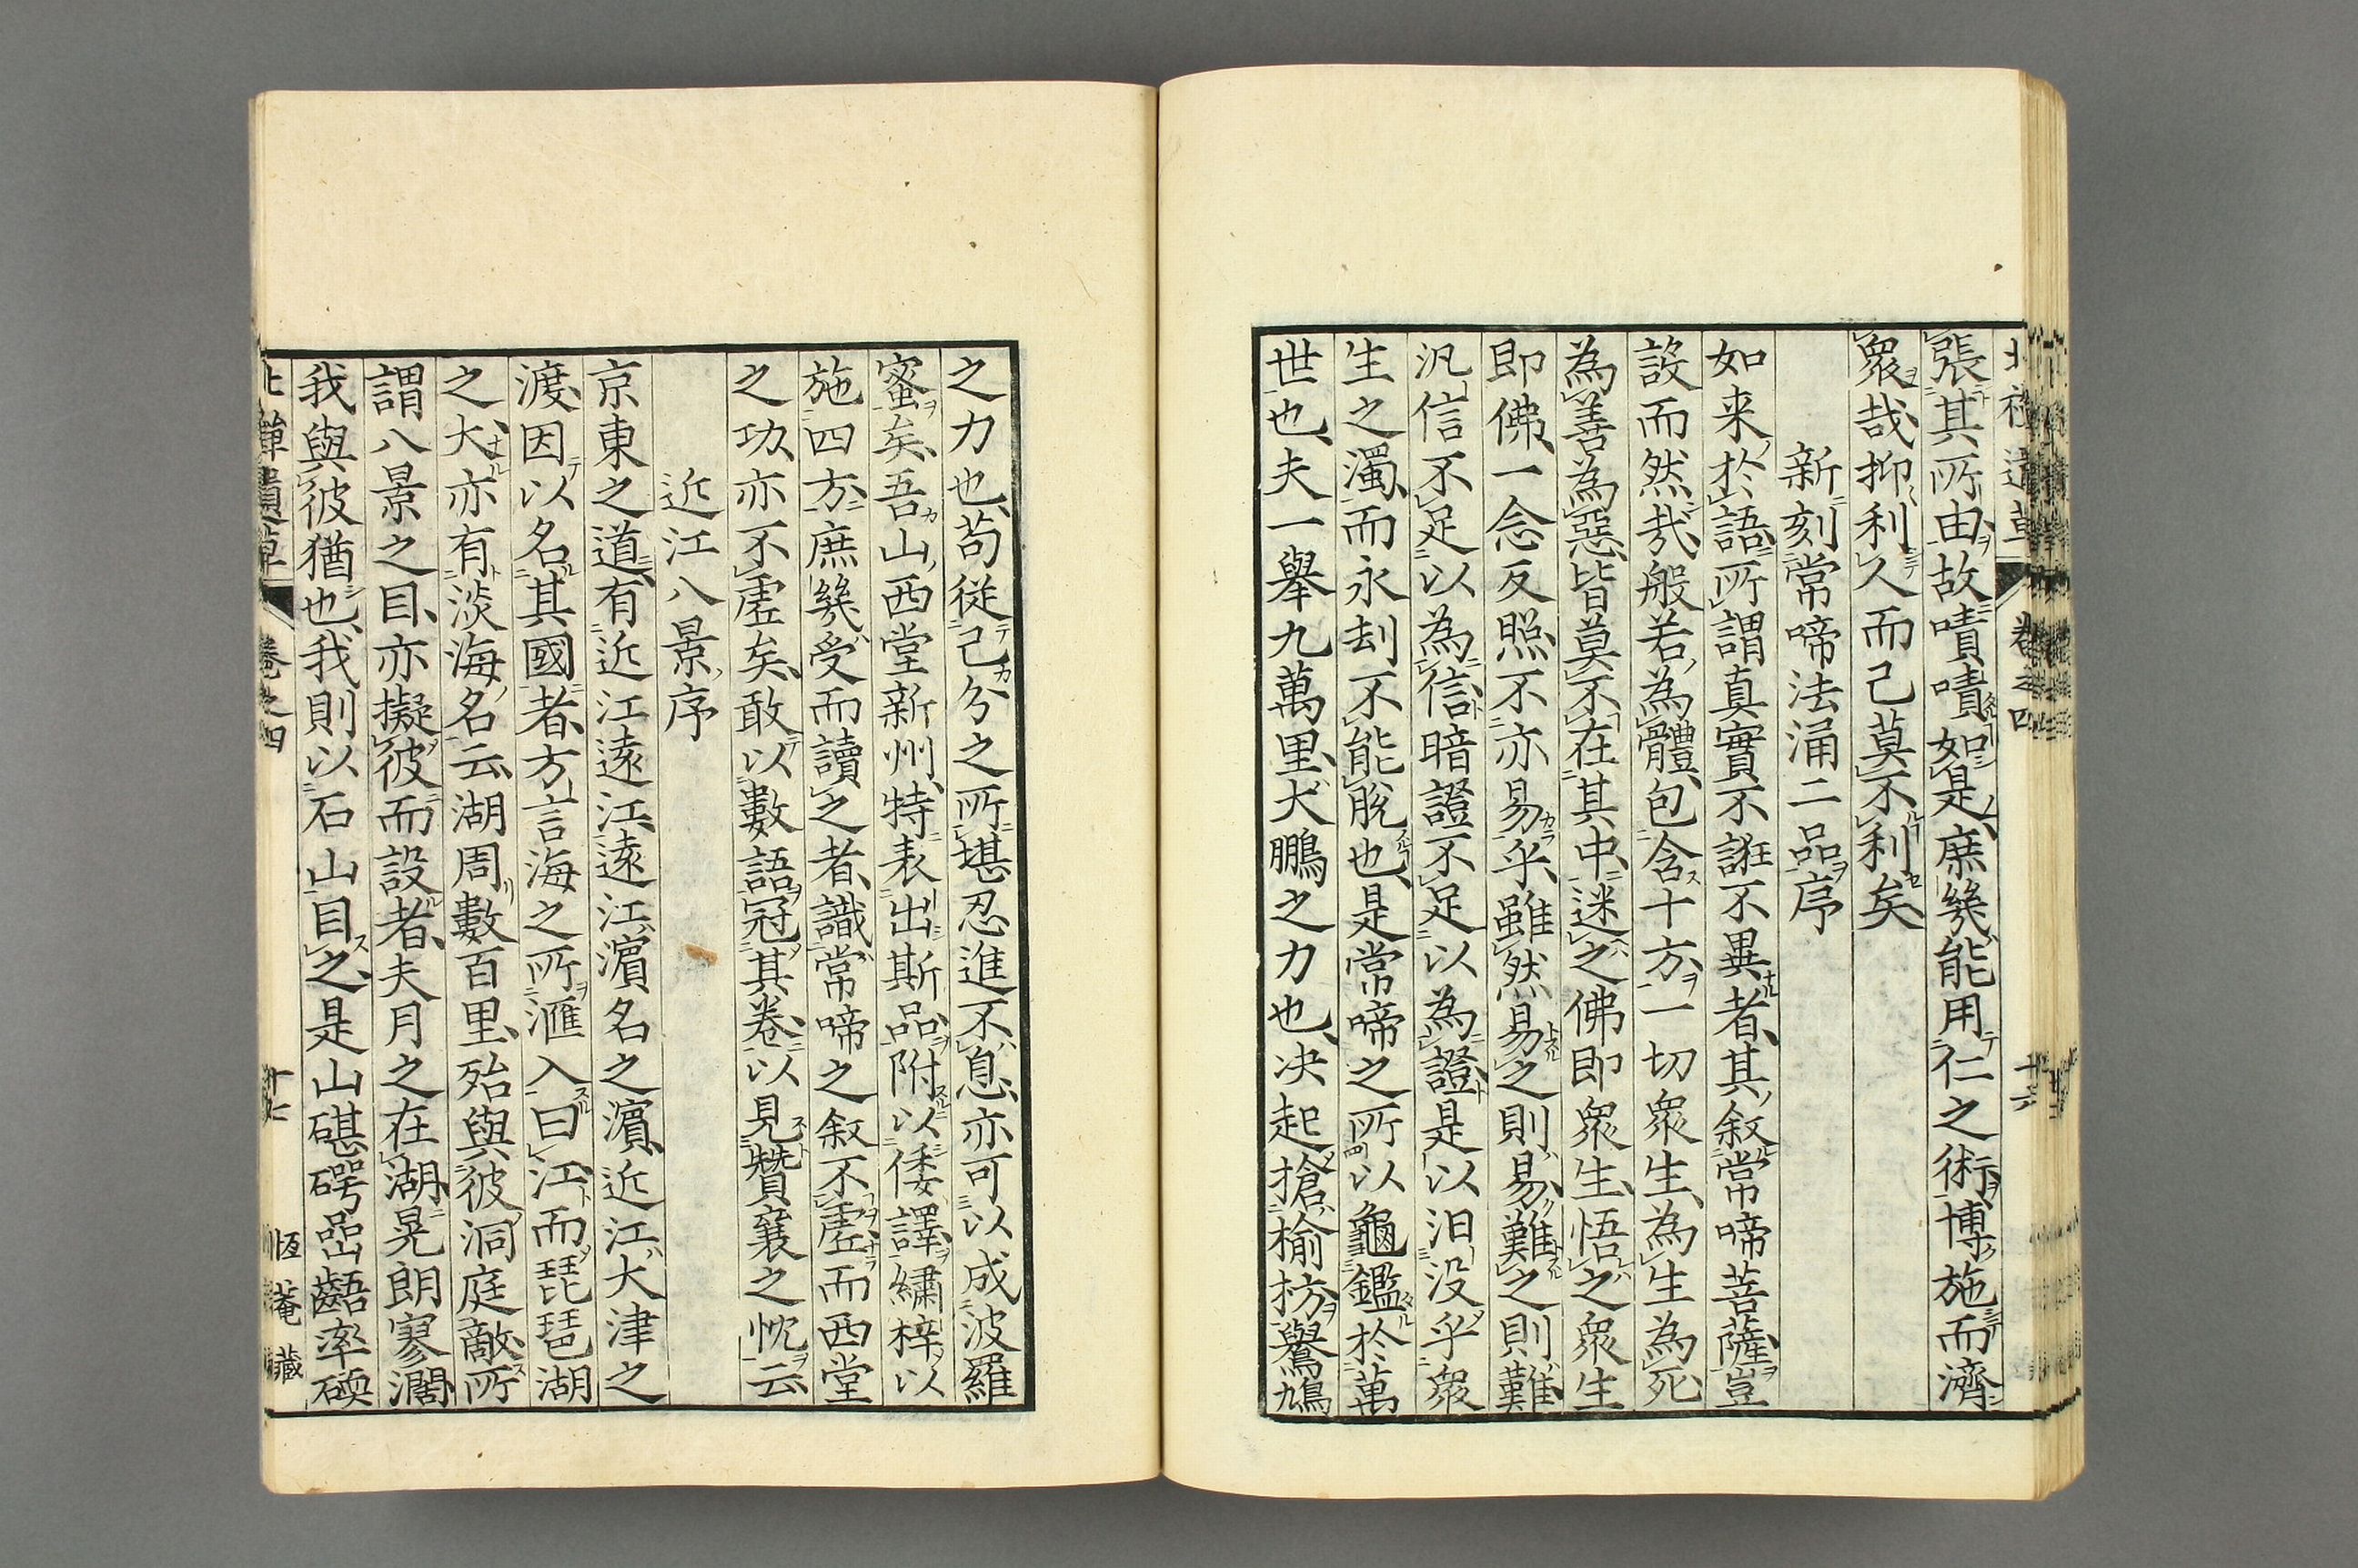 張其所由故嘖嘖如是庶幾能用仁之術博施而濟
衆哉抑利人而己莫不利矣
新刻常啼法涌二品序
如来於語所謂真實不誑不異者其叙常啼菩薩豈
設而然哉般若為體包含十方一切衆生為生為死
為善為惡皆莫不在其中迷之佛即衆生悟之衆生
即佛一念反照不亦易乎雖然易之則易難之則難
汎信不足以為信暗證不足以為證是以汨没乎衆
生之濁而永刦不能脫也是常啼之所以龜鑑於萬
世也夫一舉九萬里大鵬之力也决起搶榆枋鷽鳩
之力也苟從己分之所堪忍進不息亦可以成波羅
蜜矣吾山西堂新州特表出斯品附以倭譯繡梓以
施四方庶幾受而讀之者識常啼之叙不虛而西堂
之功亦不虛矣敢以數語冠其卷以見贊襄之忱云
近江八景序
京東之道有近江遠江遠江濵名之濵近江大津之
渡因以名其國者方言海之所滙入曰江而琵琶湖
之大亦有淡海名云湖周數百里殆與彼洞庭敵所
謂八景之目亦擬彼而設者夫月之在湖晃朗寥濶
我與彼猶也我則以石山目之是山碪磍嵒䶥率碝
卷之四
十七
恆菴藏